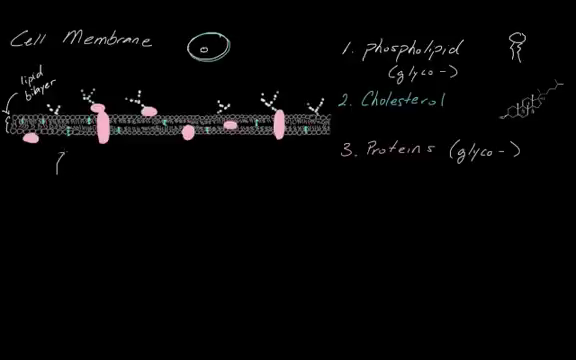 Cell Membrane
lipid
bilayer
1. phospholipid
(glyco-)
2. Cholesterol
3. Proteins (glyco-)